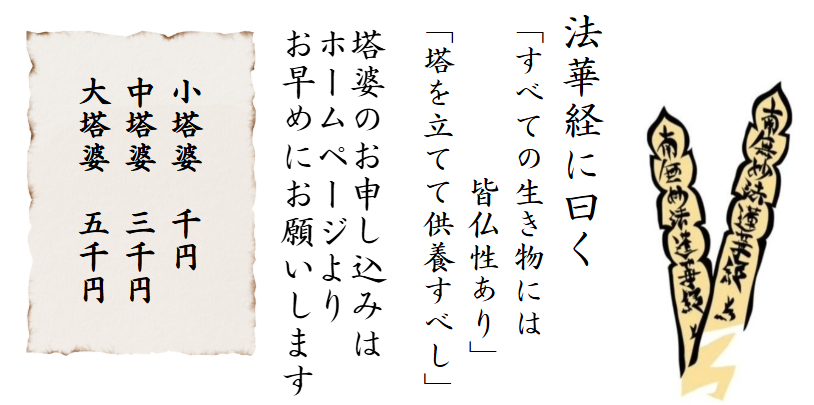 南無妙法蓮華経
南無妙法蓮華経
法華経に曰く
「すべての生き物には
皆仏性あり」
「塔を立てて供養すべし」
塔婆のお申し込みは
ホームページより
お早めにお願いします
小塔婆　千円
中塔婆　三千円
大塔婆　五千円